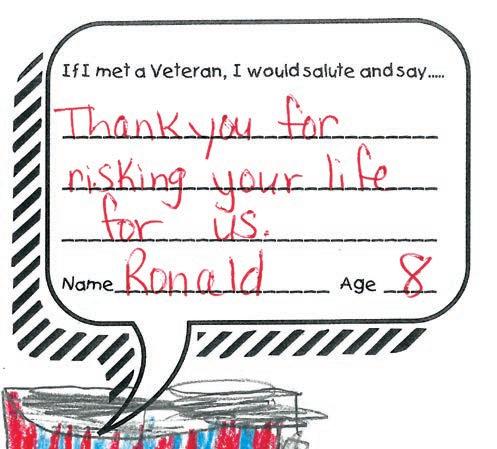 If I met a Veteran, I would salute and say.....
Thank you for
risking your life
for us.
Name Ronald Age 8